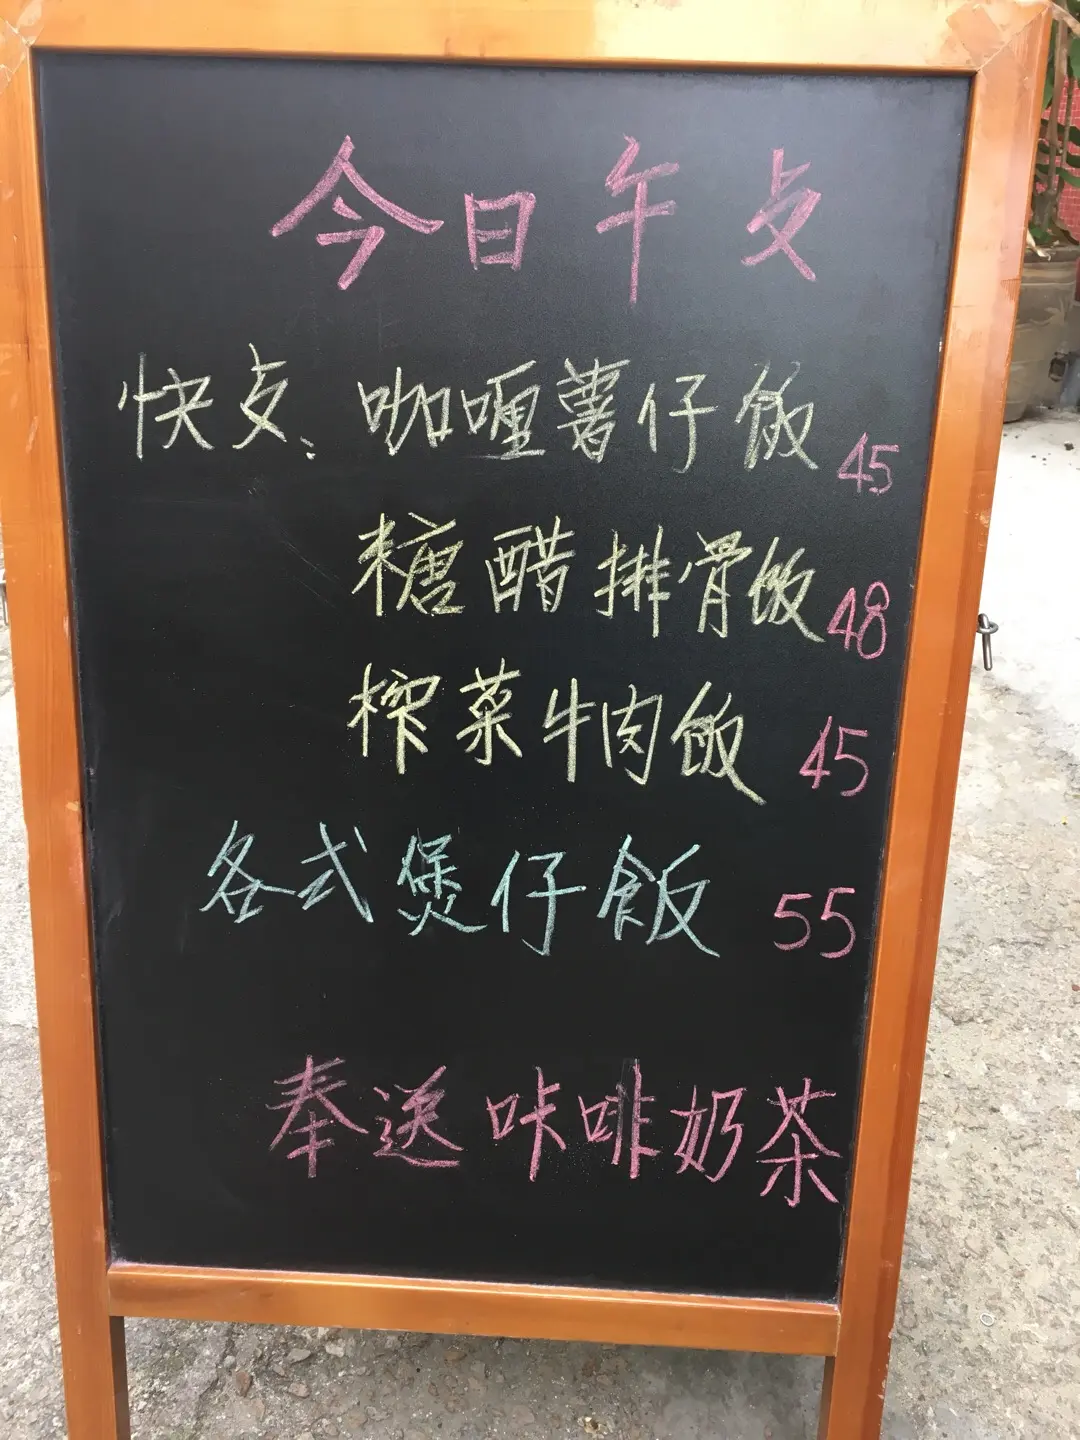 今日午点
快点、咖喱薯仔饭 45
糖醋排骨饭 48
榨菜牛肉饭 45
各式煲仔飯 55
奉送咔啡奶茶